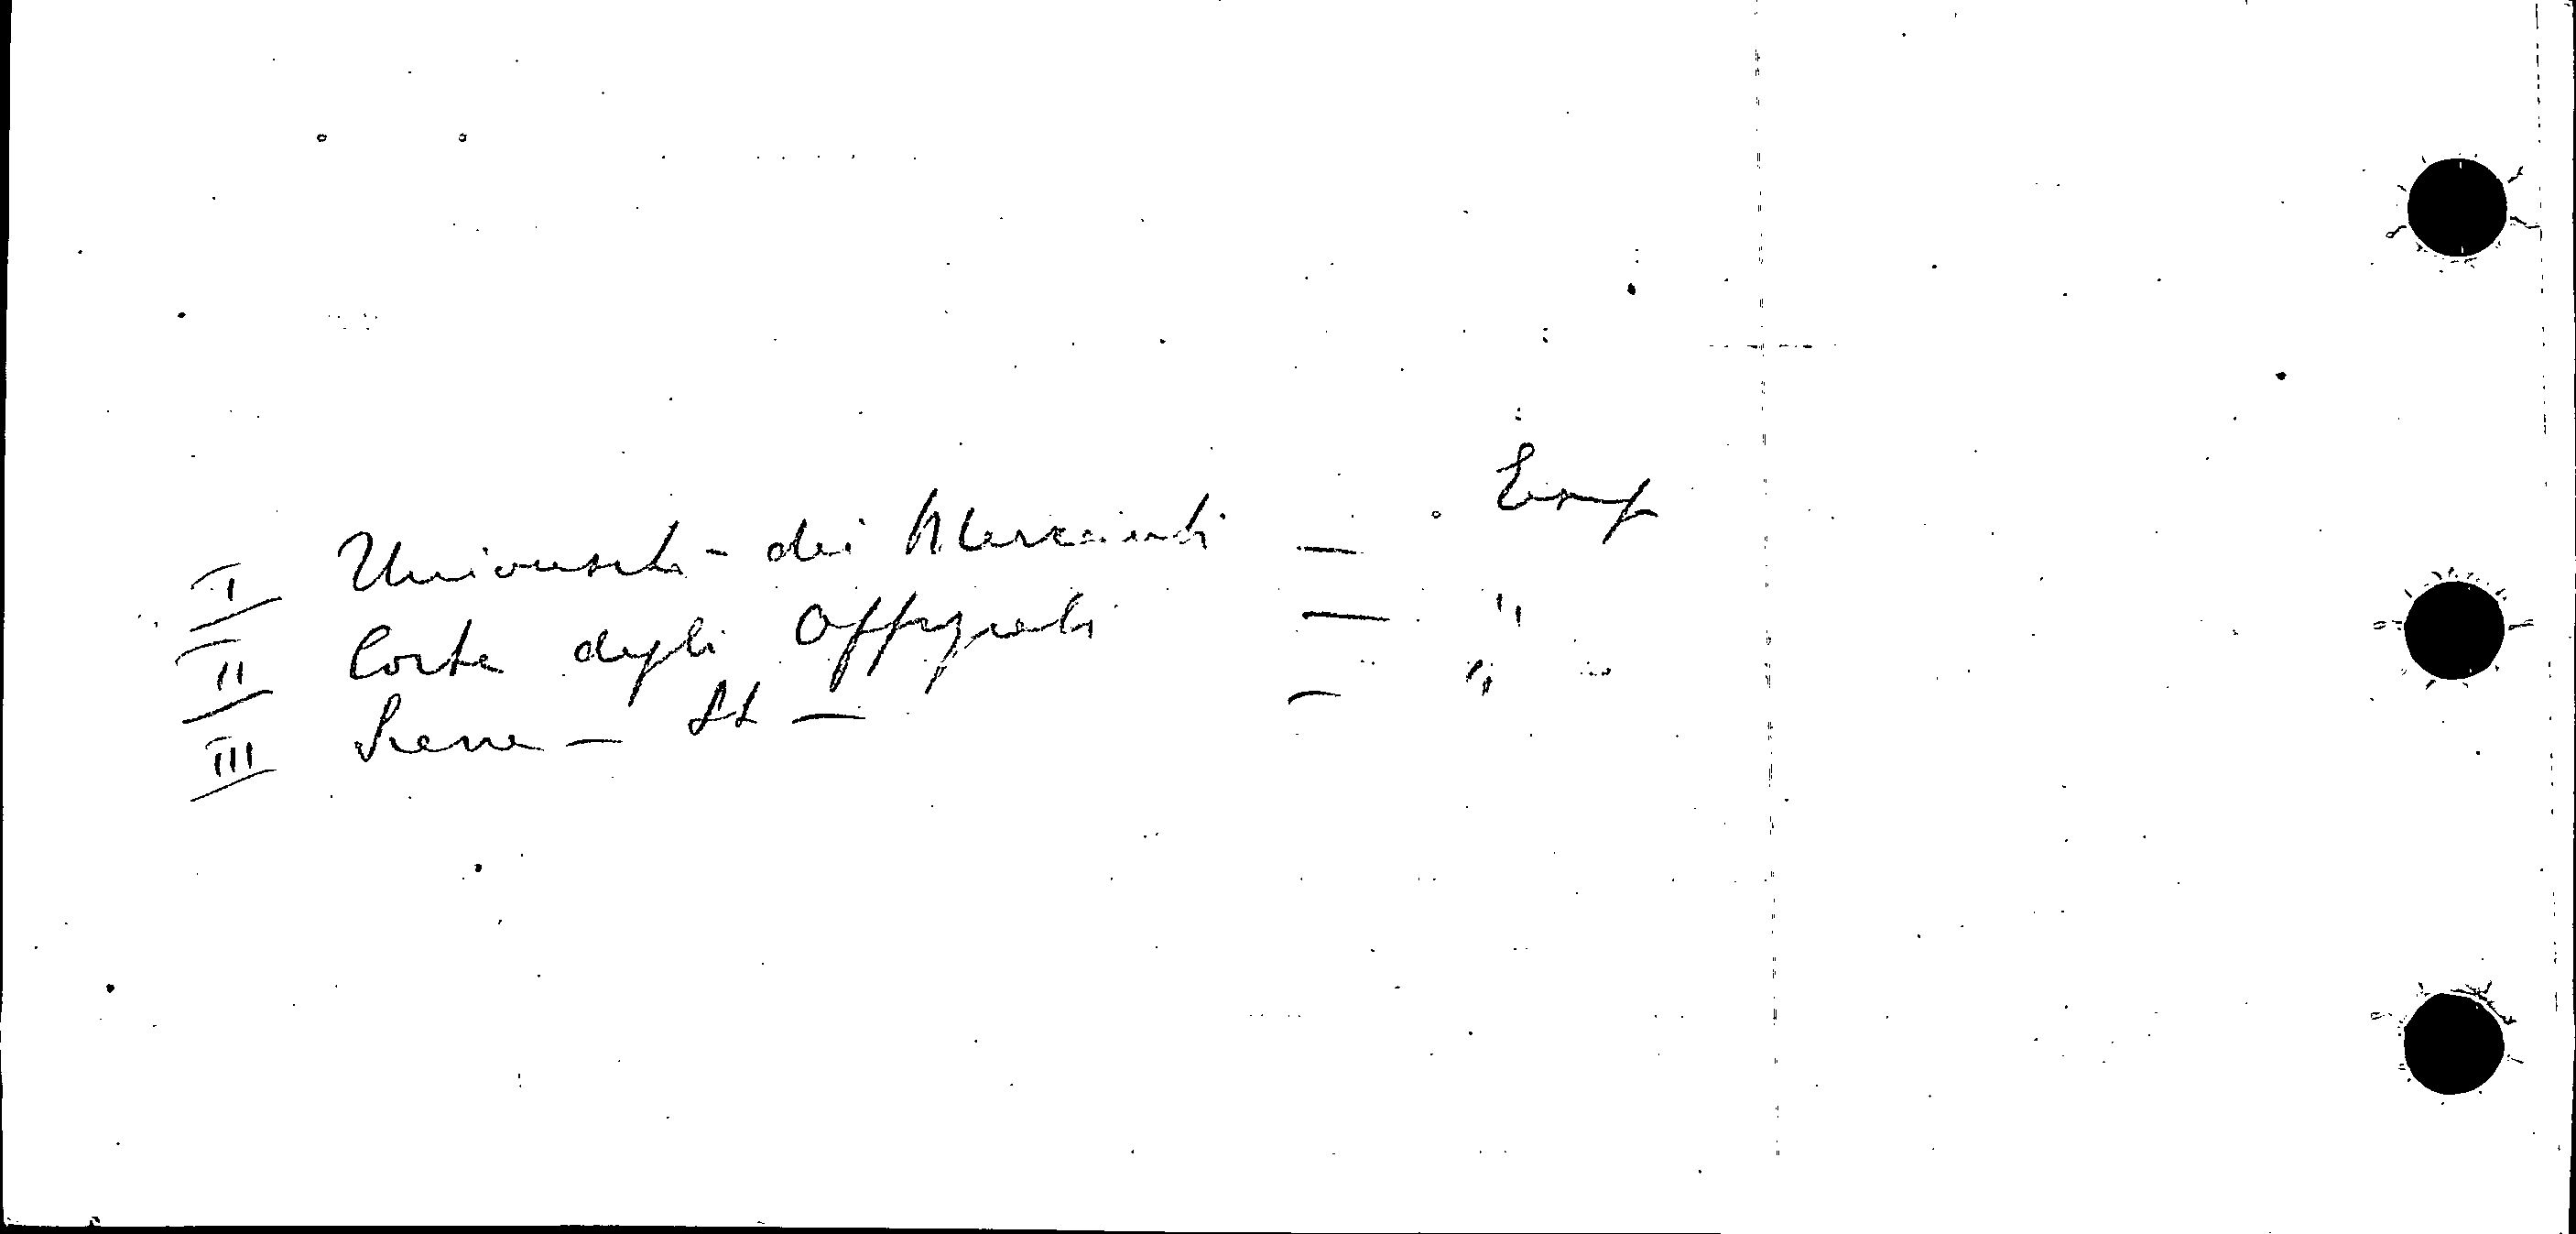 I Università - dei Mercanti —
II Corte degli Offiziali — "
III Siena - — — "